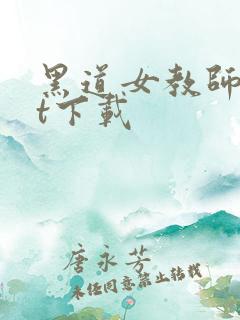 黑道女教師
t下載
唐永芳
未经同意禁止转载